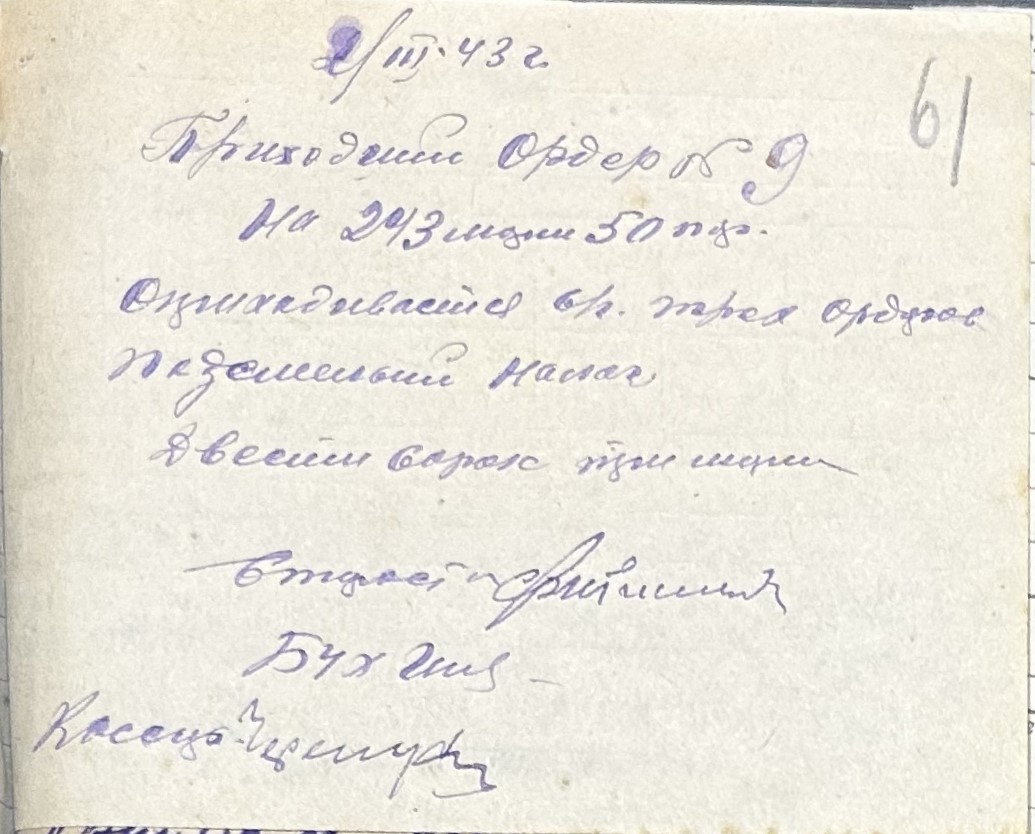 2/III-43 г.
61
Приходний Ордер № 9
На 243 марки 50 пф.
Оприходывается трех ордеров
Поземельний налог
Двести сорок три марки
Староста
Бух
Касеир